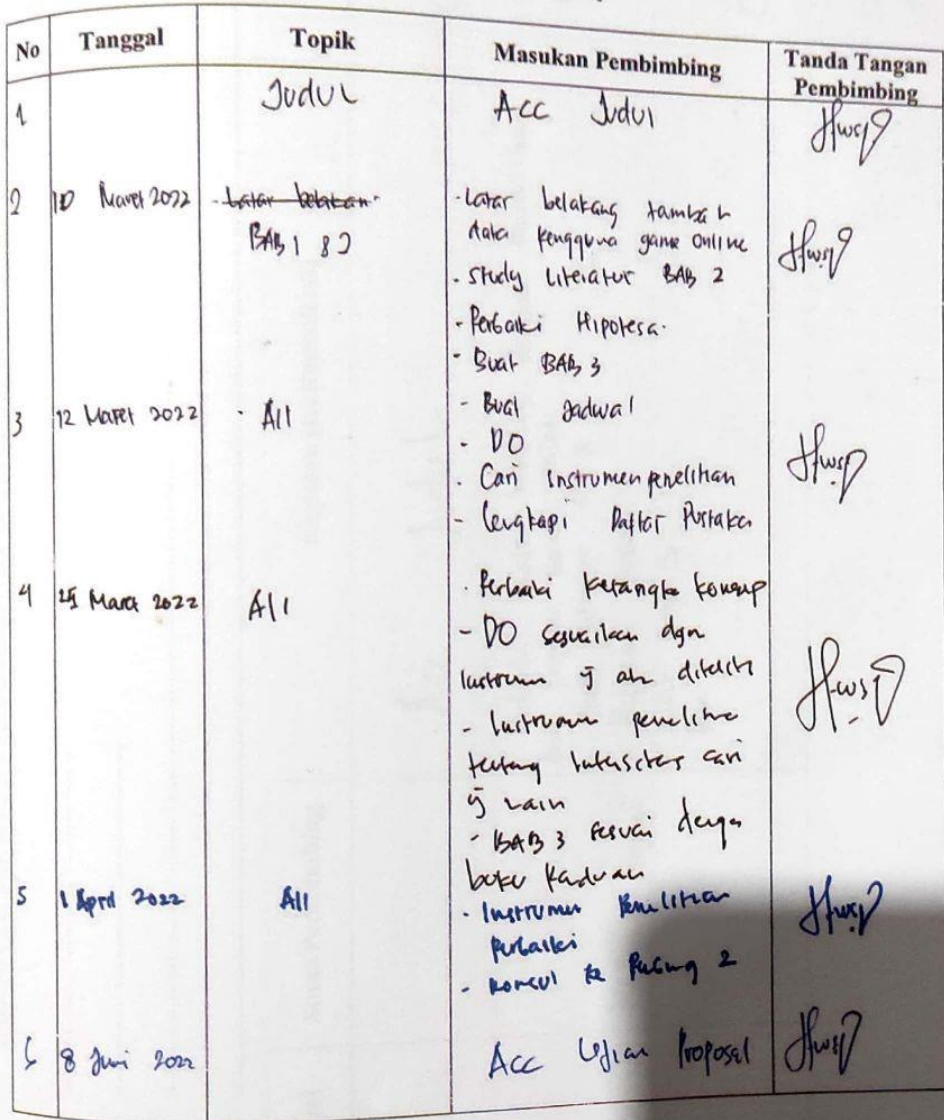 No Tanggal Topik Masukan Pembimbing Tanda Tangan Pembimbing
1 Judul Acc Judul
2 10 Maret 2022 - Latar belakan - Latar belakang tambah
BAB 1 & 2 data pengguna game online
- Study Literatur BAB 2
- Perbaiki Hipotesa.
- Buat BAB 3
3 12 Maret 2022 - All - Buat Jadwal
- DO
- Cari instrumen penelitian
- Lengkapi Daftar Pustaka
4 25 Maret 2022 All - Perbaiki kerangka konsep
- DO sesuaikan dgn
instrumen yg diteliti
- Instrumen penelitian
tentang intensitas cari
yg lain
- BAB 3 sesuai dengan
buku Panduan
5 1 April 2022 All - Instrumen Penelitian
perbaiki
- konsul ke 2
8 Juni 2022 Acc Ujian Proposal